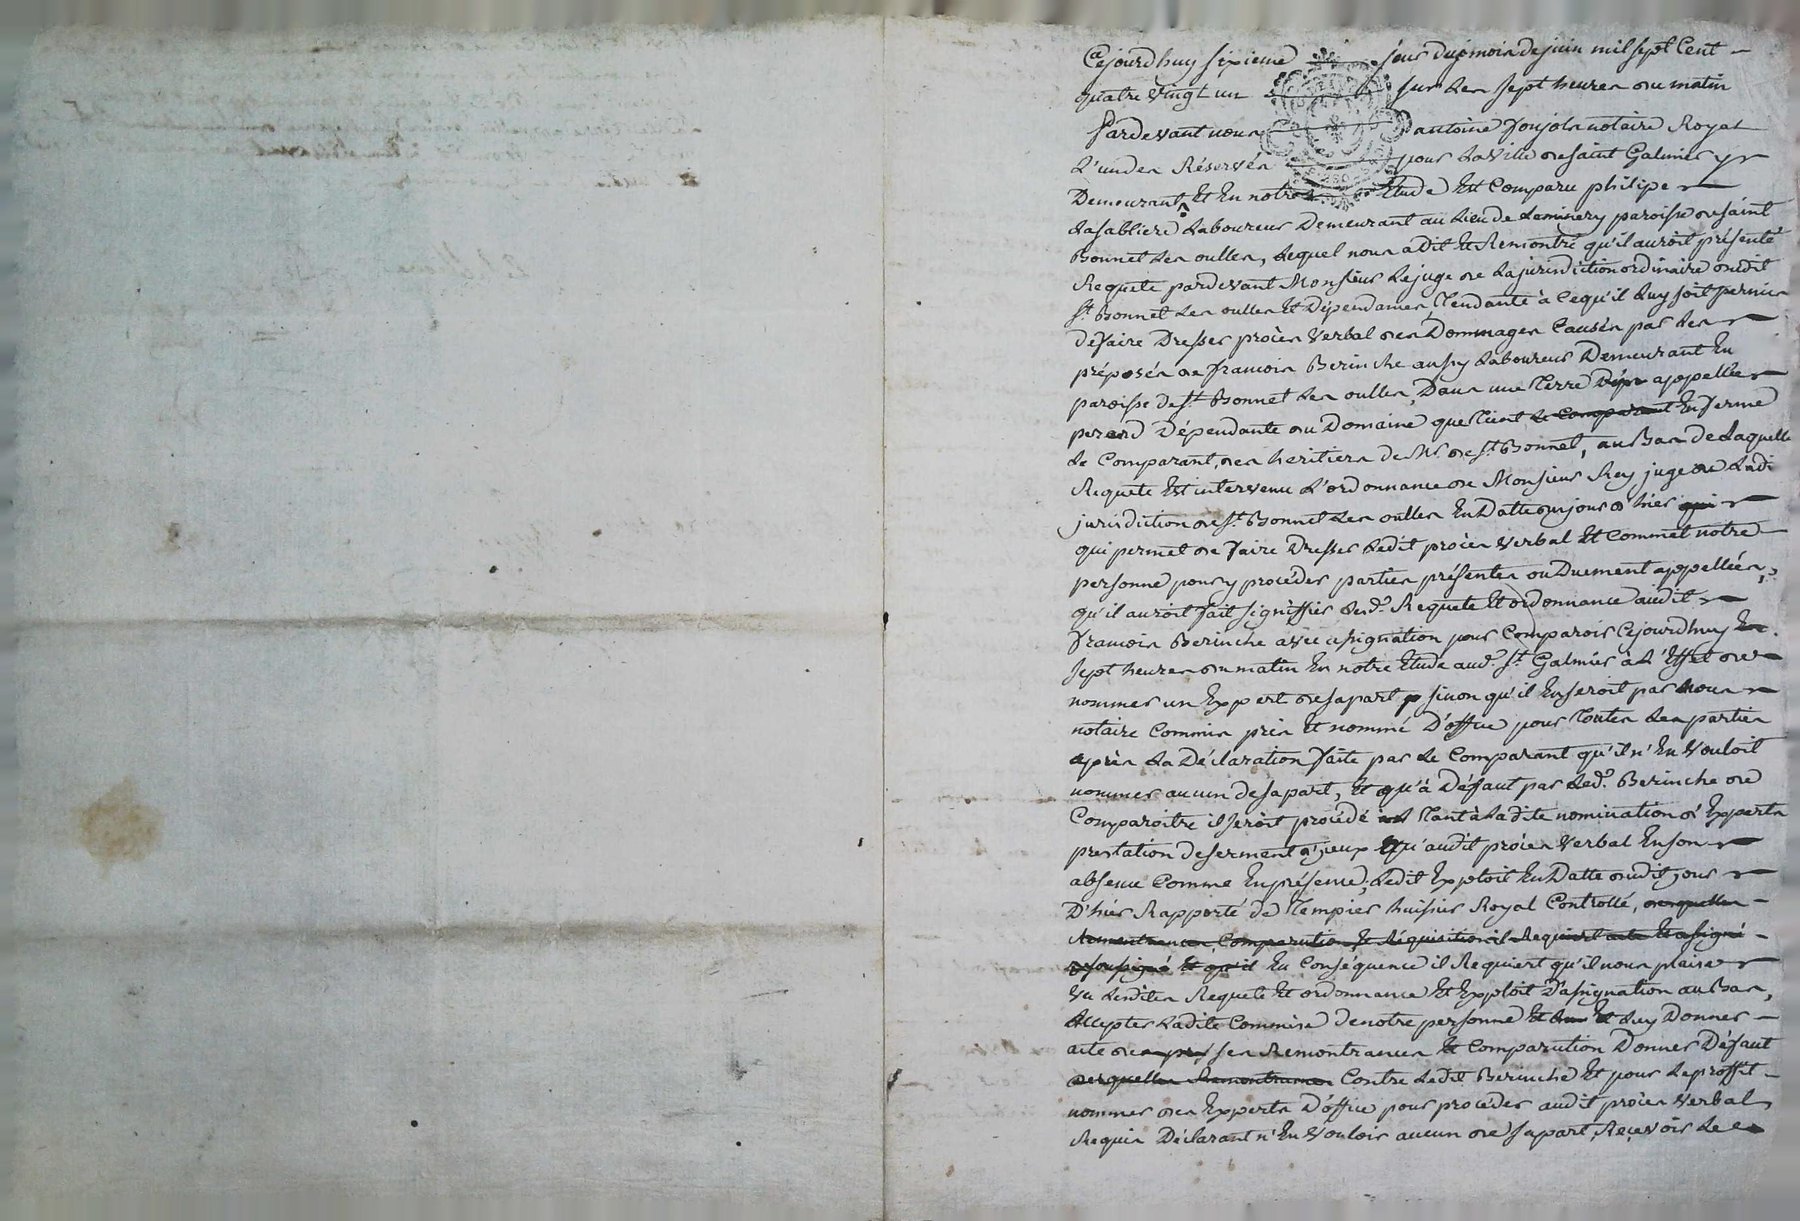 Cejourdhuy sixieme jour du moin de juin mil sept Cent
quatre vingt un sur Les sept heures du matin
Pardevant nous antoine Joujols notaire Royal
L'un des Réservés pour La ville de saint Galmier y
Demeurant, Et En notre Etude Est Comparu philipe
Lasabliere Laboureur Demeurant au Lieu de paroisse de saint
Bonnet Les oulles, Lequel nous a dit Et Remontré qu'il auroit présenté
Requete pardevant Monsieur Le juge de La jurisdiction ordinaire dudit
st. Bonnet Les oulles Et Dépendances, Tendante à Ce qu'il Luy soit permis
de faire Dresser procès Verbal des Dommages Causés par Les
préposés de francois Berinche aussy Laboureur Demeurant En
paroisse de st. Bonnet Les oulles, Dans une Terre appellée
Dépendante du Domaine que Tient Le Comparant En ferme
Le Comparant, des heritiers de Mr. de st. Bonnet, au Bas de Laquelle
Requete Est intervenu L'ordonnance de Monsieur Rey juge de Ladi
jurisdiction de st. Bonnet Les oulles En Datte du jour d'hier qui
qui permet de faire Dresser Ledit procès Verbal Et Commet notre
personne pour y procéder parties présentes ou Duement appellées,
qu'il auroit fait signiffier Lesd. Requete Et ordonnance audit
francois Berinche avec assignation pour Comparoir Cejourdhuy
sept heures du matin En notre Etude aud. st. Galmier à L'Effet de
nommer un Expert de sa part sinon qu'il En seroit par nous
notaire Commis pris Et nommé D'office pour Toutes Les parties
après La Déclaration faite par Le Comparant qu'il n'En Vouloit
nommer aucun de sa part, Et qu'à Défaut par Led. Berinche de
Comparoitre il seroit procédé Tant à Ladite nomination d'Experts
prestation de serment d'iceux qu'audit procès Verbal En son
absence Comme En présence, Ledit Exploit En Datte dudit jour
D'hier Rapporté de Tempier huissier Royal Controllé, desquelles
Remontrances, Comparution, Et Réquisition il Requiert acte Et a signé
soussigné Et qu'il En Conséquence il Requiert qu'il nous plaise
Vu Lesdites Requete Et ordonnance Et Exploit D'assignation au Bas,
Accepter Ladite Commise de notre personne Et Luy Donner
acte de ses Remontrances Et Comparution Donner Défaut
desquelles Remontrances Contre Ledit Berinche Et pour Le proffit
nommer des Experts D'office pour procéder audit procès Verbal
Requis Déclarant n'En Vouloir aucun de sa part, Recevoir Le